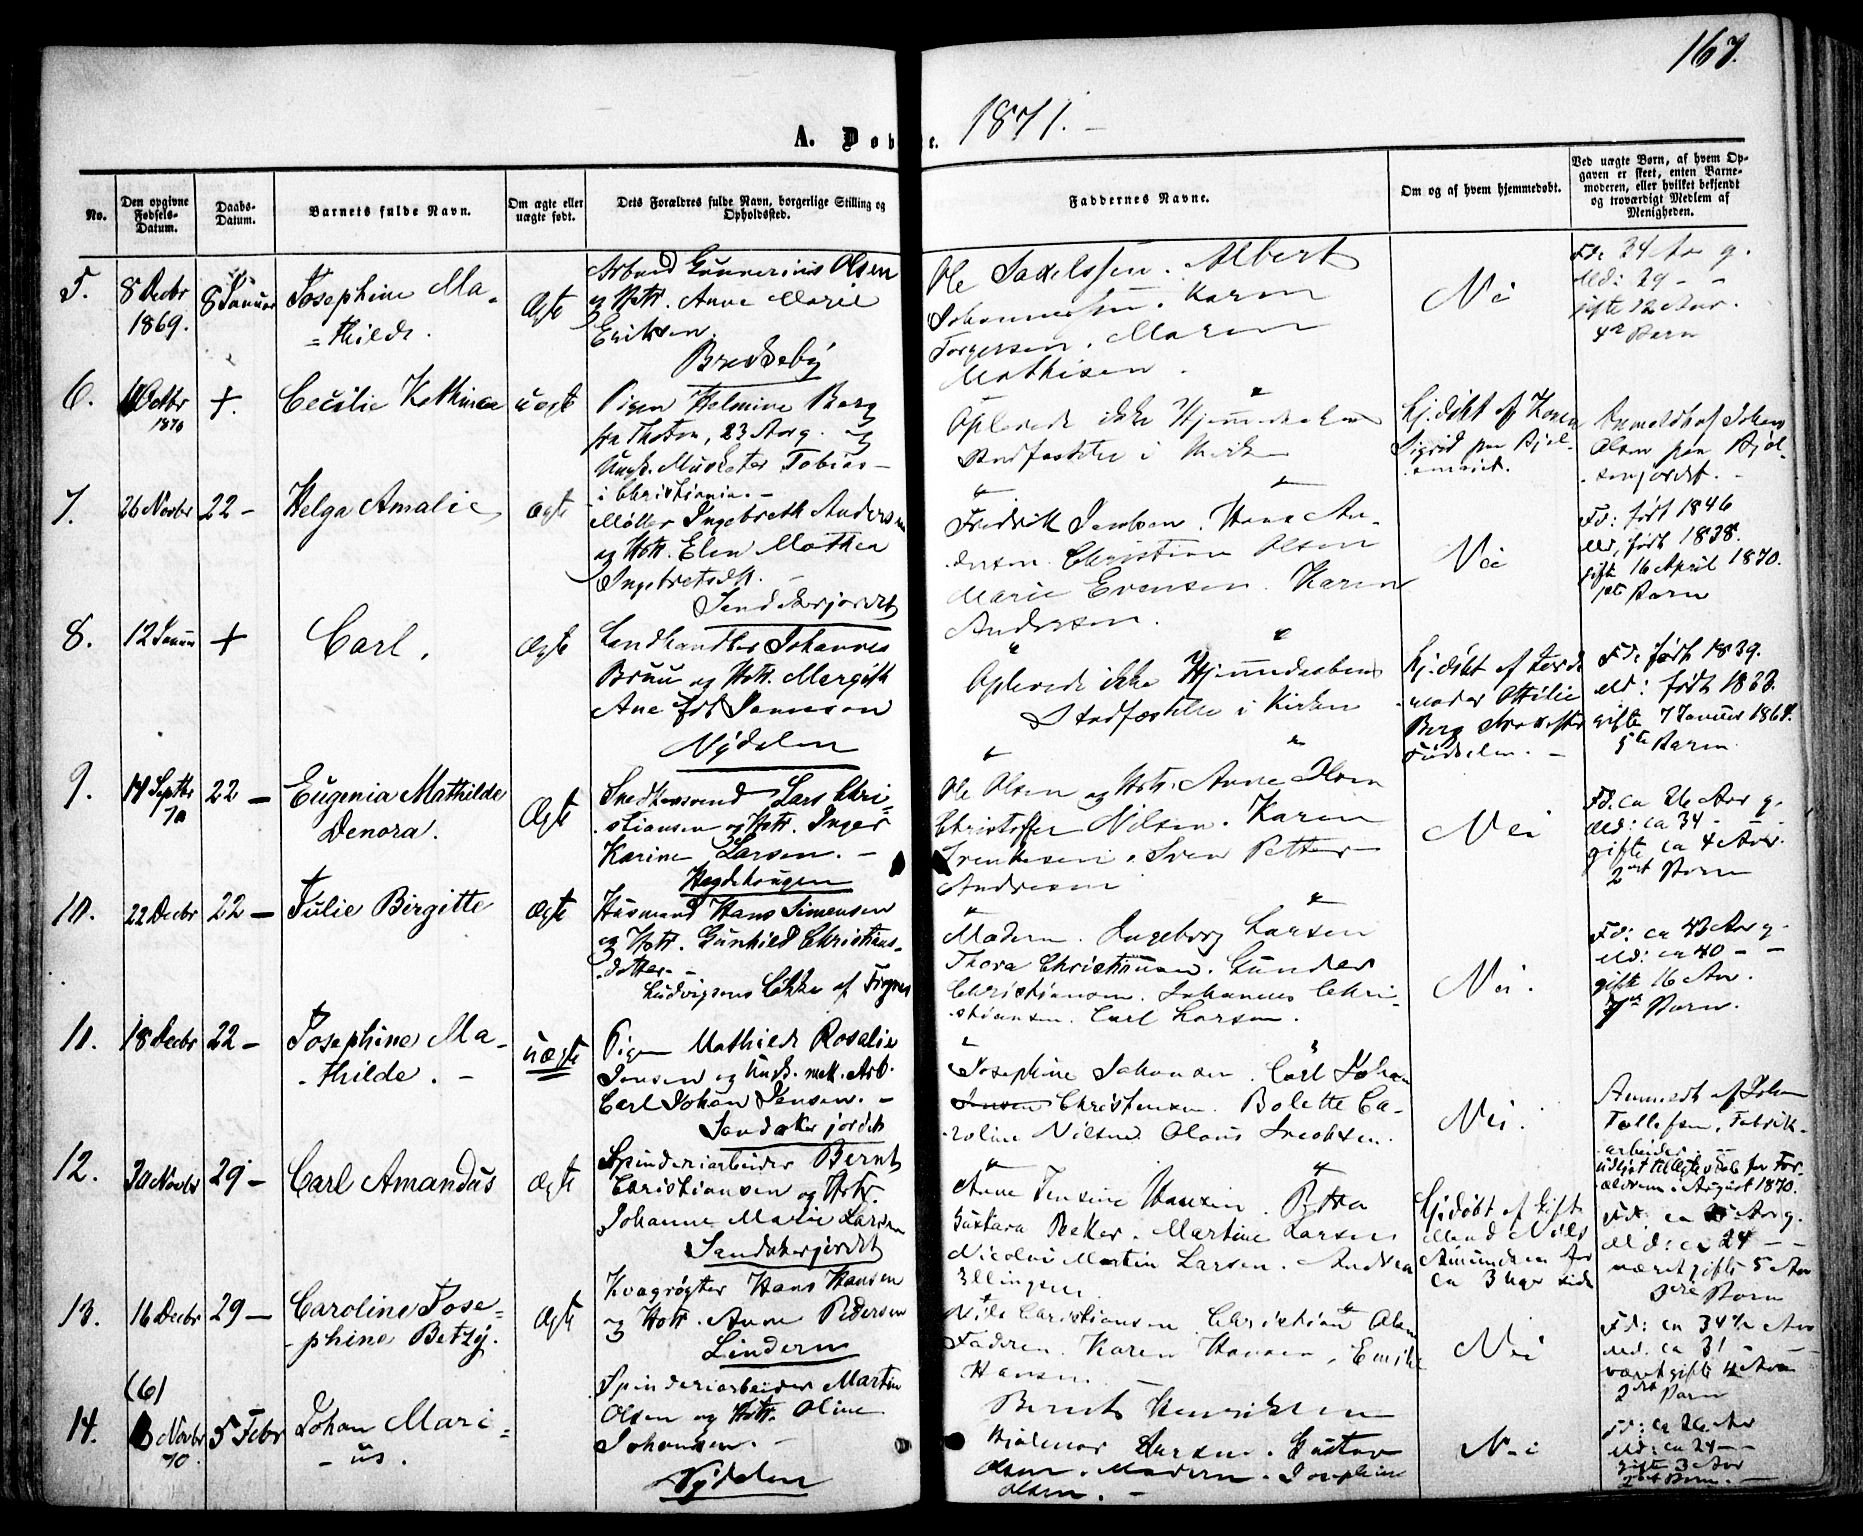 167.
A. Døbte. 1871.
No.
Den opgivne Fødsels-Datum.
Daabs-Datum.
Barnets fulde Navn.
Om ægte eller uægte født.
Dets Forældres fulde Navn, borgerlige Stilling og Opholdssted.
Faddernes Navne.
Om og af hvem hjemmedøbt.
Ved uægte Børn, af hvem Opgaven er skeet, enten Barnemoderen, eller hvilket bekjendt og troværdigt Medlem af Menigheden.
5.
8 Decbr
1869.
8 Januar
Josephine Ma-
=thilde.
Ægte
Arbmd Gunnerius Olsen
og Hstr. Anne Marie
Eriksen.
Ole Saxelssen. Albert
Johannessen. Karen
Torgersen. Maren
Mathisen.
Nei
Fd: 34 Aar g.
Md: 29 - -
gifte 12 Aar.
4de Barn
6.
Octbr
1870
+.
Cecilie Kathinca
uægte
Pigen Helmine Berg
fra Thoten, 23 Aarg. og
Ungk. Musketer Tobias -
i Christiania. -
Oplevede ikke Hjemmedaabens
Stadfæstelse i Kirken
Hj.døbt af Karen
Sigrid paa Bjøl-
Anmeldt af Johan
Olsen paa Bjøl-
senjordet. -
7.
26 Novbr
22 -
Helga Amalie
Ægte
Møller Ingebreth Andersen
og Hstr. Elen Mathea
Ingebretsdtr.
Sandakerjordet
Fredrik Jacobsen. Hans An-
dersen. Christian Olsen
Marie Evensen. Karen
Andersen.
Nei
Fd: født 1846
Md, født 1838.
gifte 16 April 1870.
1ste Barn
8.
12 Januar
+
Carl.
Ægte
Landhandler Johannes
Bruu og Hstr. Mergith
Ane født Jamesson
Nydalen
Oplevede ikke Hjemmedaabens
Stadfæstelse i Kirken
Hj.døbt af Jorde
moder Ottilie
Berg strax efter
Fødselen. -
Fd: født 1839.
Md: født 1833.
gifte 7 Januar 186.
5te Barn.
9.
14 Septbr
70
22 -
Eugenia Mathilde
Denora.
Ægte
Snedkersvend Lars Chri-
stiansen og Hstr. Inger
Karine Larsen. -
Hegdehaugen
Ole Olsen og Hstr. Anne Olsen
Christoffer Nilsen. Karen
Svendsen. Sven Petter
Andresen
Nei
Fd. ca 26 Aar g.
Md: ca 34 -
gifte ca 4 Aar.
2det Barn
10.
22 Decbr
22 -
Julie Birgitte
Ægte
Husmand Hans Simensen
og Hstr. Gunhild Christians-
datter -
Ludvigsens Løkke af Frogner
Moderen. Ingeborg Larsen
Thora Christiansen. Gunder
Christiansen. Johannes Chri-
stiansen. Carl Larsen.
Nei.
Fd: ca 43 Aar g.
Md: ca 40 - -
gifte 16 Aar.
7de Barn.
11.
18 Decbr
22 -
Josephine Ma-
-thilde. -
uægte
Pigen Mathilde Rosalie
Jensen og Ungk. Arb.
Carl Johan Jensen. -
Sandakerjordet
Josephine Johansen. Carl Johan
Jensen Christensen. Bolette Ca-
roline Nilsen. Olaus Jacobsen.
Nei.
Anmeldt af Johan
Tollefsen, Fabrik-
arbeider. -
12.
30 Novbr
29 -
Carl Amandus
Ægte
Spinderiarbeider Bernt
Christiansen og Hstr.
Johanne Marie Larsen
Sandakerjordet
Anne Jensine Hansen. Petra
Gustava Bekker. Martine Larsen
Nicolai Martin Larsen. Andrea
Ellingsen
Hj.døbt af Gift
Mand Nils
Amundsen for
ca 3 Uger siden
Fd: ca Aar g.
Md: ca 24 - -
været gifte 5 Aar
3die Barn
13.
16 Decbr
29 -
Caroline Jose-
-phine Betzy.
Ægte
Kvægrøgter Hans Hansen
og Hstr. Anne Pedersen
Lindern
Nils Christiansen. Christian Olsen
Faderen. Karen Hansen, Emilie
Hansen.
Nei
Fd: ca 34½ Aar
Md. ca 31 -
været gifte 4 Aar
2det Barn
14.
(6)
Novbr
70.
5 Febr
Johan Mari-
-us.
Spinderiarbeider Martin
Olsen og Hstr. Oline
Johansen. -
Nydalen
Bernt Henriksen
Hjalmar Larsen. Gustav
Olsen. Moderen. Josephine
Olsen. -
Nei
Fd: ca 26 Aar
Md: ca 24 - -
gifte 3 Aar
2det Barn. -